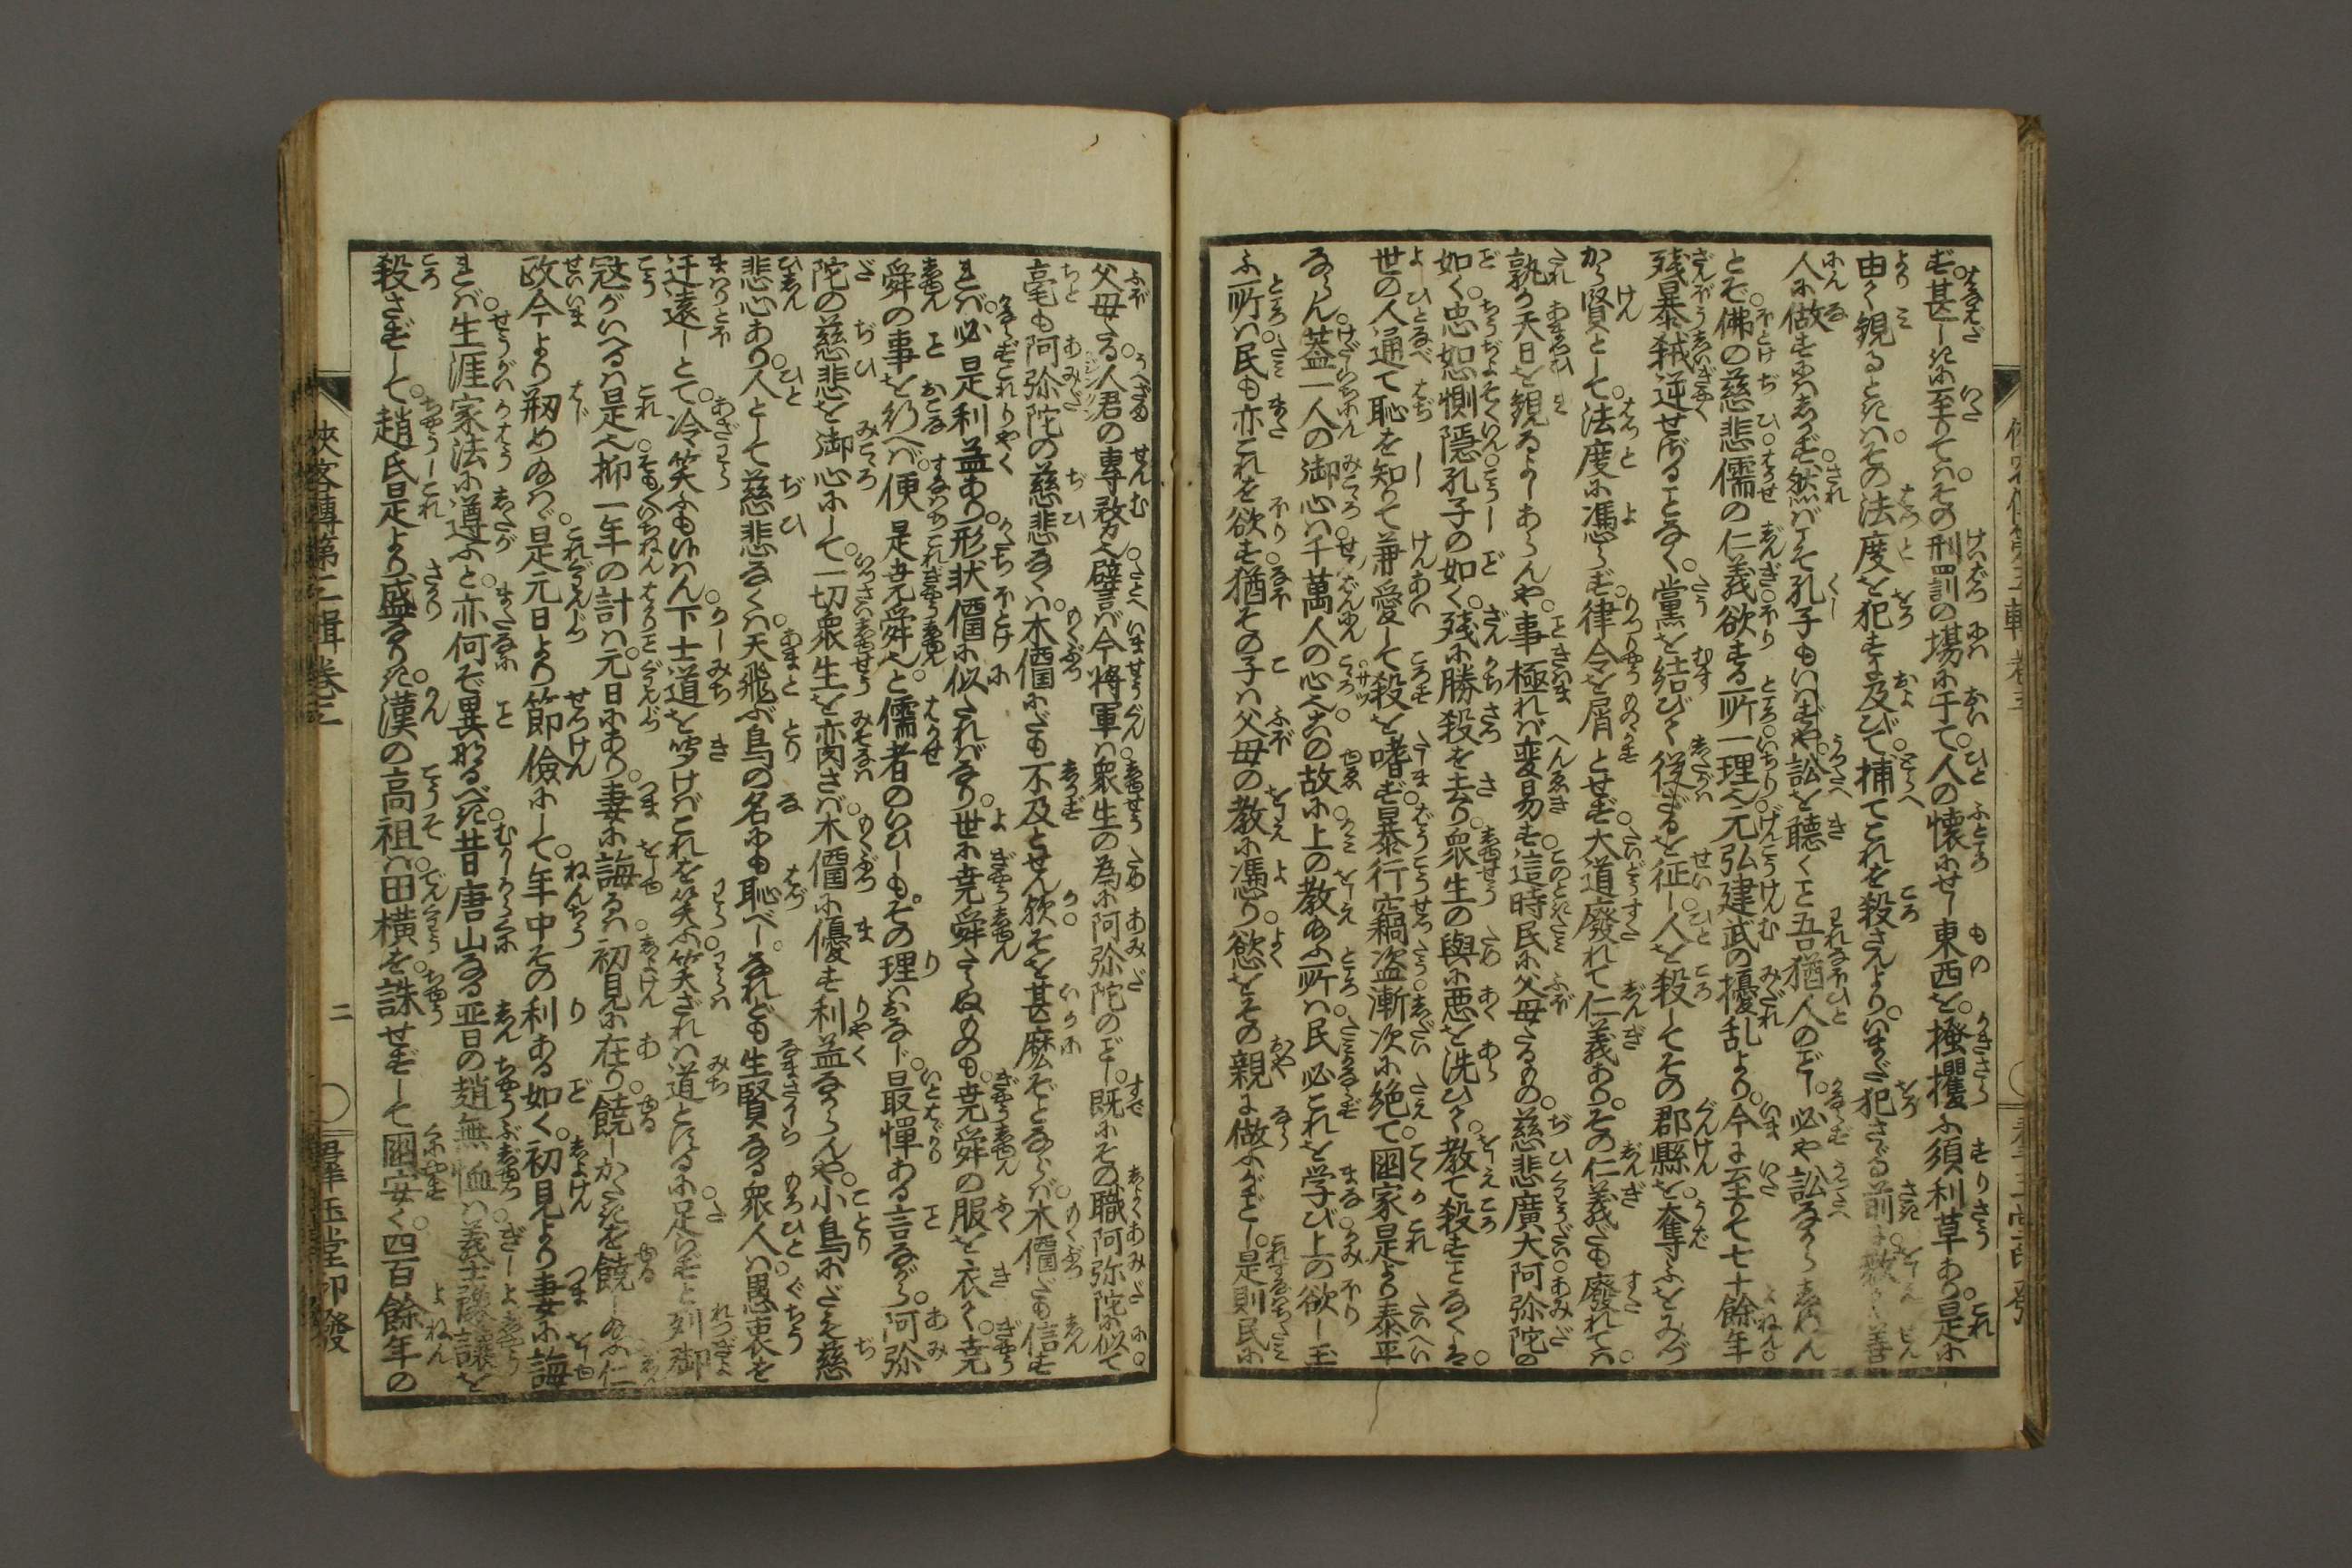 ず。甚しきに至りては。その刑罰の場に于て。人の懐にせし東西を。掻攫ふ須利草あり。是に
由て観るときは。その法度を犯すに及びて。捕てこれを殺さんより。いまだ犯さざる前に教て善
人に做すにはしかず。然ばこそ孔子もいはずや。訟を聴くこと吾猶人のごとし。必や訟なからしめん
とぞ。佛の慈悲。儒の仁義。欲する所一理也。元弘建武の擾乱より。今に至りて七十餘年
残暴弑逆せざることなく。黨を結びて従ざるを征し。人を殺してその郡縣を。奪ふをみづ
から賢として。法度に憑らず。律令を屑とせず。大道廢れて仁義あり。その仁義だも廢れては。
孰か天日を観るよしあらんや。事極れば変易す。這時民に父母たるもの。慈悲廣大阿弥陀の
如く。忠如恕惻隠孔子の如く。残に勝殺を去り。衆生の與に悪を洗ひて。教て殺すことなくは。
世の人通て恥を知りて兼愛して殺を嗜ず。暴行竊盗漸次に絶て。國家是より泰平
ならん。蓋一人の御心は千萬人の心也。この故に上の教あふ所は。民必これを学び。上の欲し玉
ふ所は。民も亦これを欲す。猶その子は父母の教に憑り。慾をその親に做ふがごとし。是則民に
父母たる。人君の専務也。譬ば今将軍は。衆生の為に阿弥陀のごとし。既にその職阿弥陀に似て。
毫も阿弥陀の慈悲なくは。木偶にだも不及とせん歟。そを甚麽ぞとならば。木偶だも信ず
れば。必是利益あり。形状偶に似たればなり。世に堯舜たらぬものも。堯舜の服を衣て。堯
舜の事を行へば。便是堯舜也と。儒者のいひしも。その理はおなじ。最憚ある言ながら。阿弥
陀の慈悲を御心にして。一切衆生を稟さば。木偶に優す利益ならんや。小鳥にだも慈
悲心あり。人として慈悲なくは。天飛ぶ鳥の名にも恥べし。されども生賢なる衆人は。愚衷を
迂遠しとて。冷笑ふも侍はん。下士道を聞けばこれを笑ふ。笑ざれは道とするに。足らずと列御
冦がいへるは是也。抑一年の計は元日にあり。妻に誨るは初見に在り。饒しがたきを饒しぬふ仁
政。今より刱めぬはゞ。是元日より節儉にして。年中その利ある如く。初見より妻に誨
れば。生涯家法に遵ふと。亦何ぞ異なるべき。昔唐山なる晋の趙無恤は。義士豫譲を
殺さずして。趙氏是より盛なりき。漢の高祖は田横を。誅せずして國安く。四百餘年の
侠客傳第二輯巻三
二
群玉堂印發